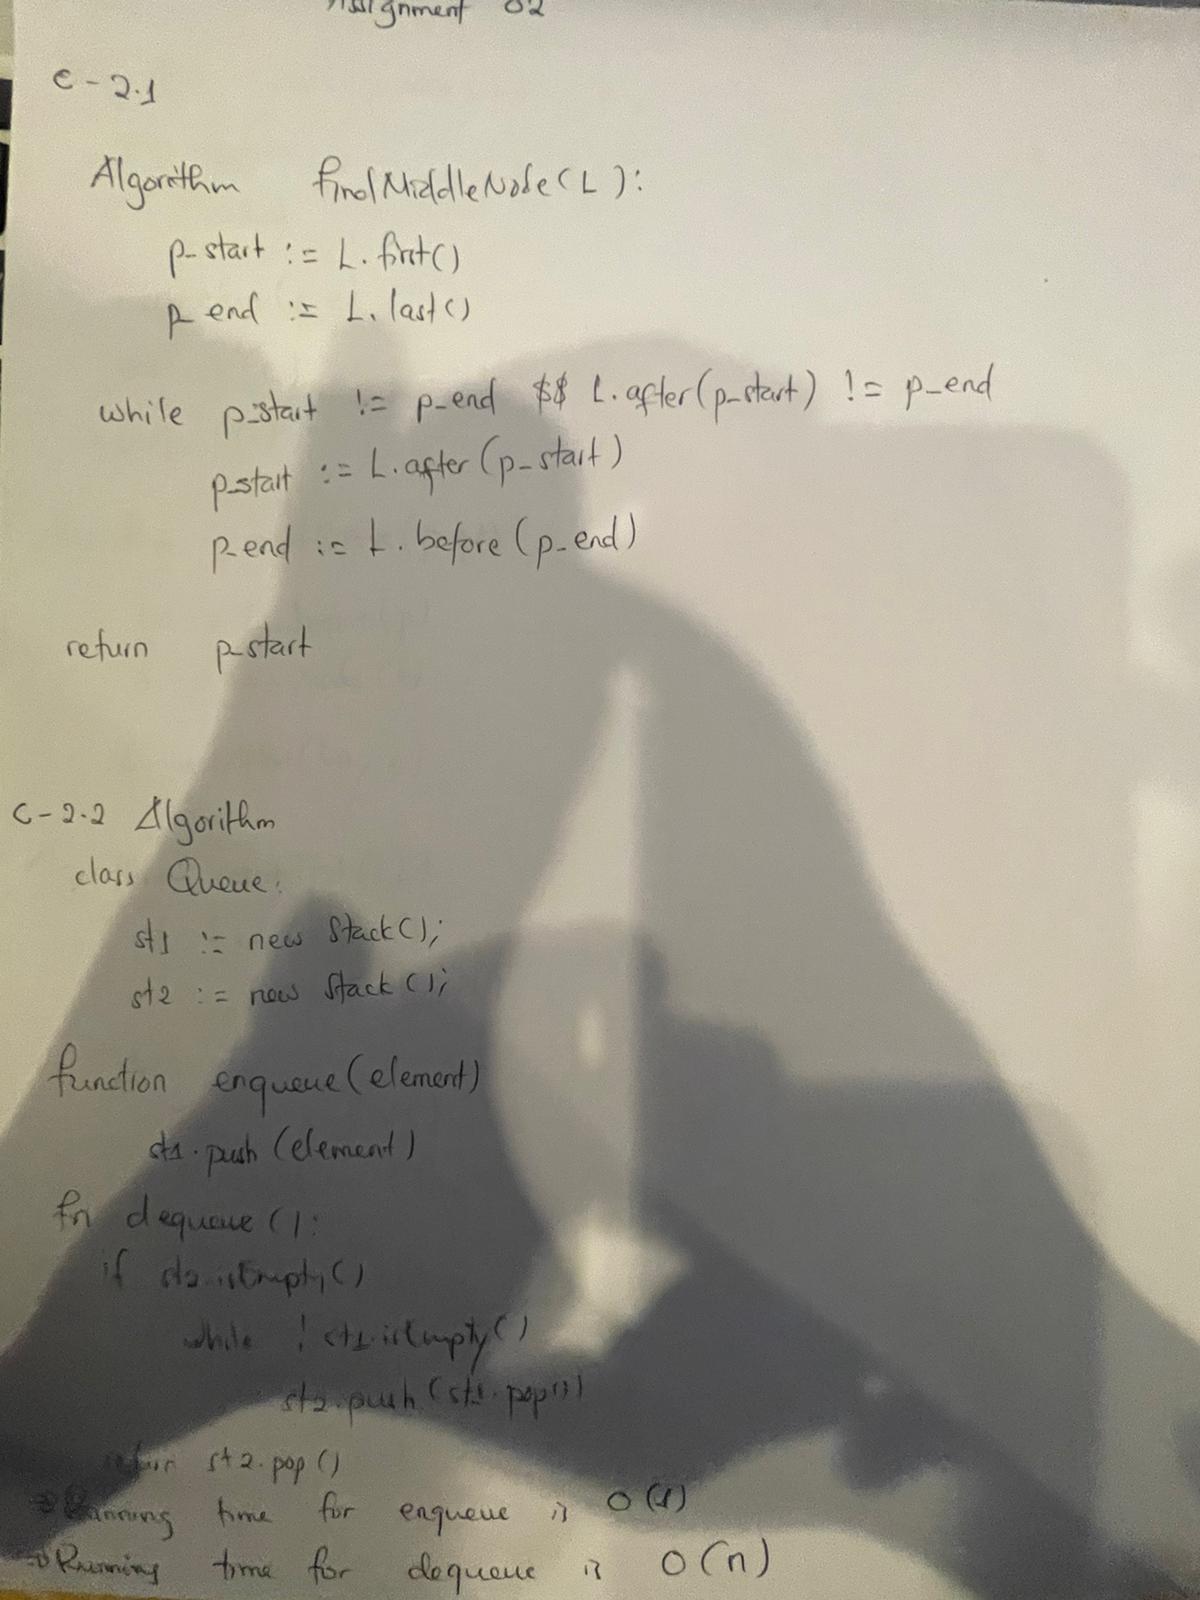 Assignment 02
C-2.1
Algorithm findMiddleNode(L):
p_start := L.first()
p_end := L.last()
while p_start != p_end $$ L.after(p_start) != p_end
p_start := L.after(p_start)
p_end := L.before(p_end)
return p_start
C-2.2 Algorithm
class Queue:
st1 := new Stack();
st2 := new Stack();
function enqueue(element)
st1.push(element)
fn dequeue():
if st2.isEmpty()
while !st1.isEmpty()
st2.push(st1.pop())
return st2.pop()
⇒ Running time for enqueue is O(1)
⇒ Running time for dequeue is O(n)